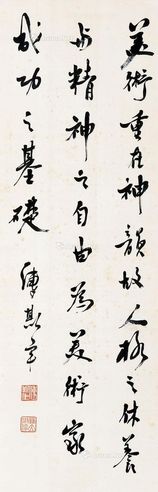 美術重在神韻故人格之休養
与精神之自由為美術家
成功之基礎
陳斯寧